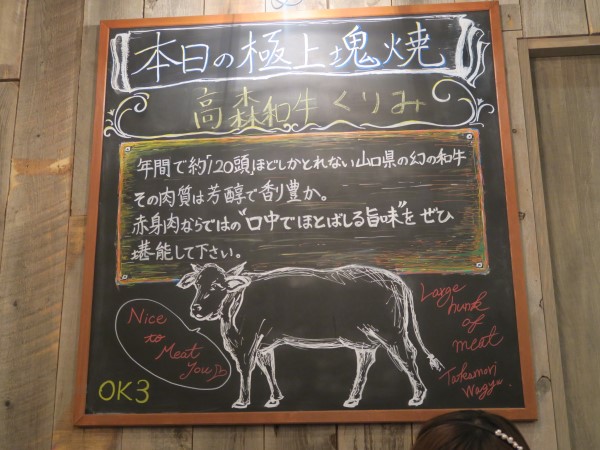 本日の極上塊焼
高森和牛くりみ
年間で約120頭ほどしかとれない山口県の幻の和牛
その肉質は芳醇で香り豊か。
赤身肉ならではの"口中でほとばしる旨味"をぜひ
堪能して下さい。
Nice
to
Meat
You
Large
hunk
of
meat
Takamori
Wagyu.
OK3